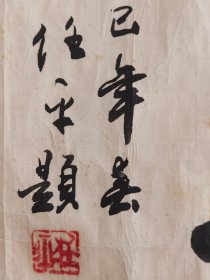 己年春
任平題